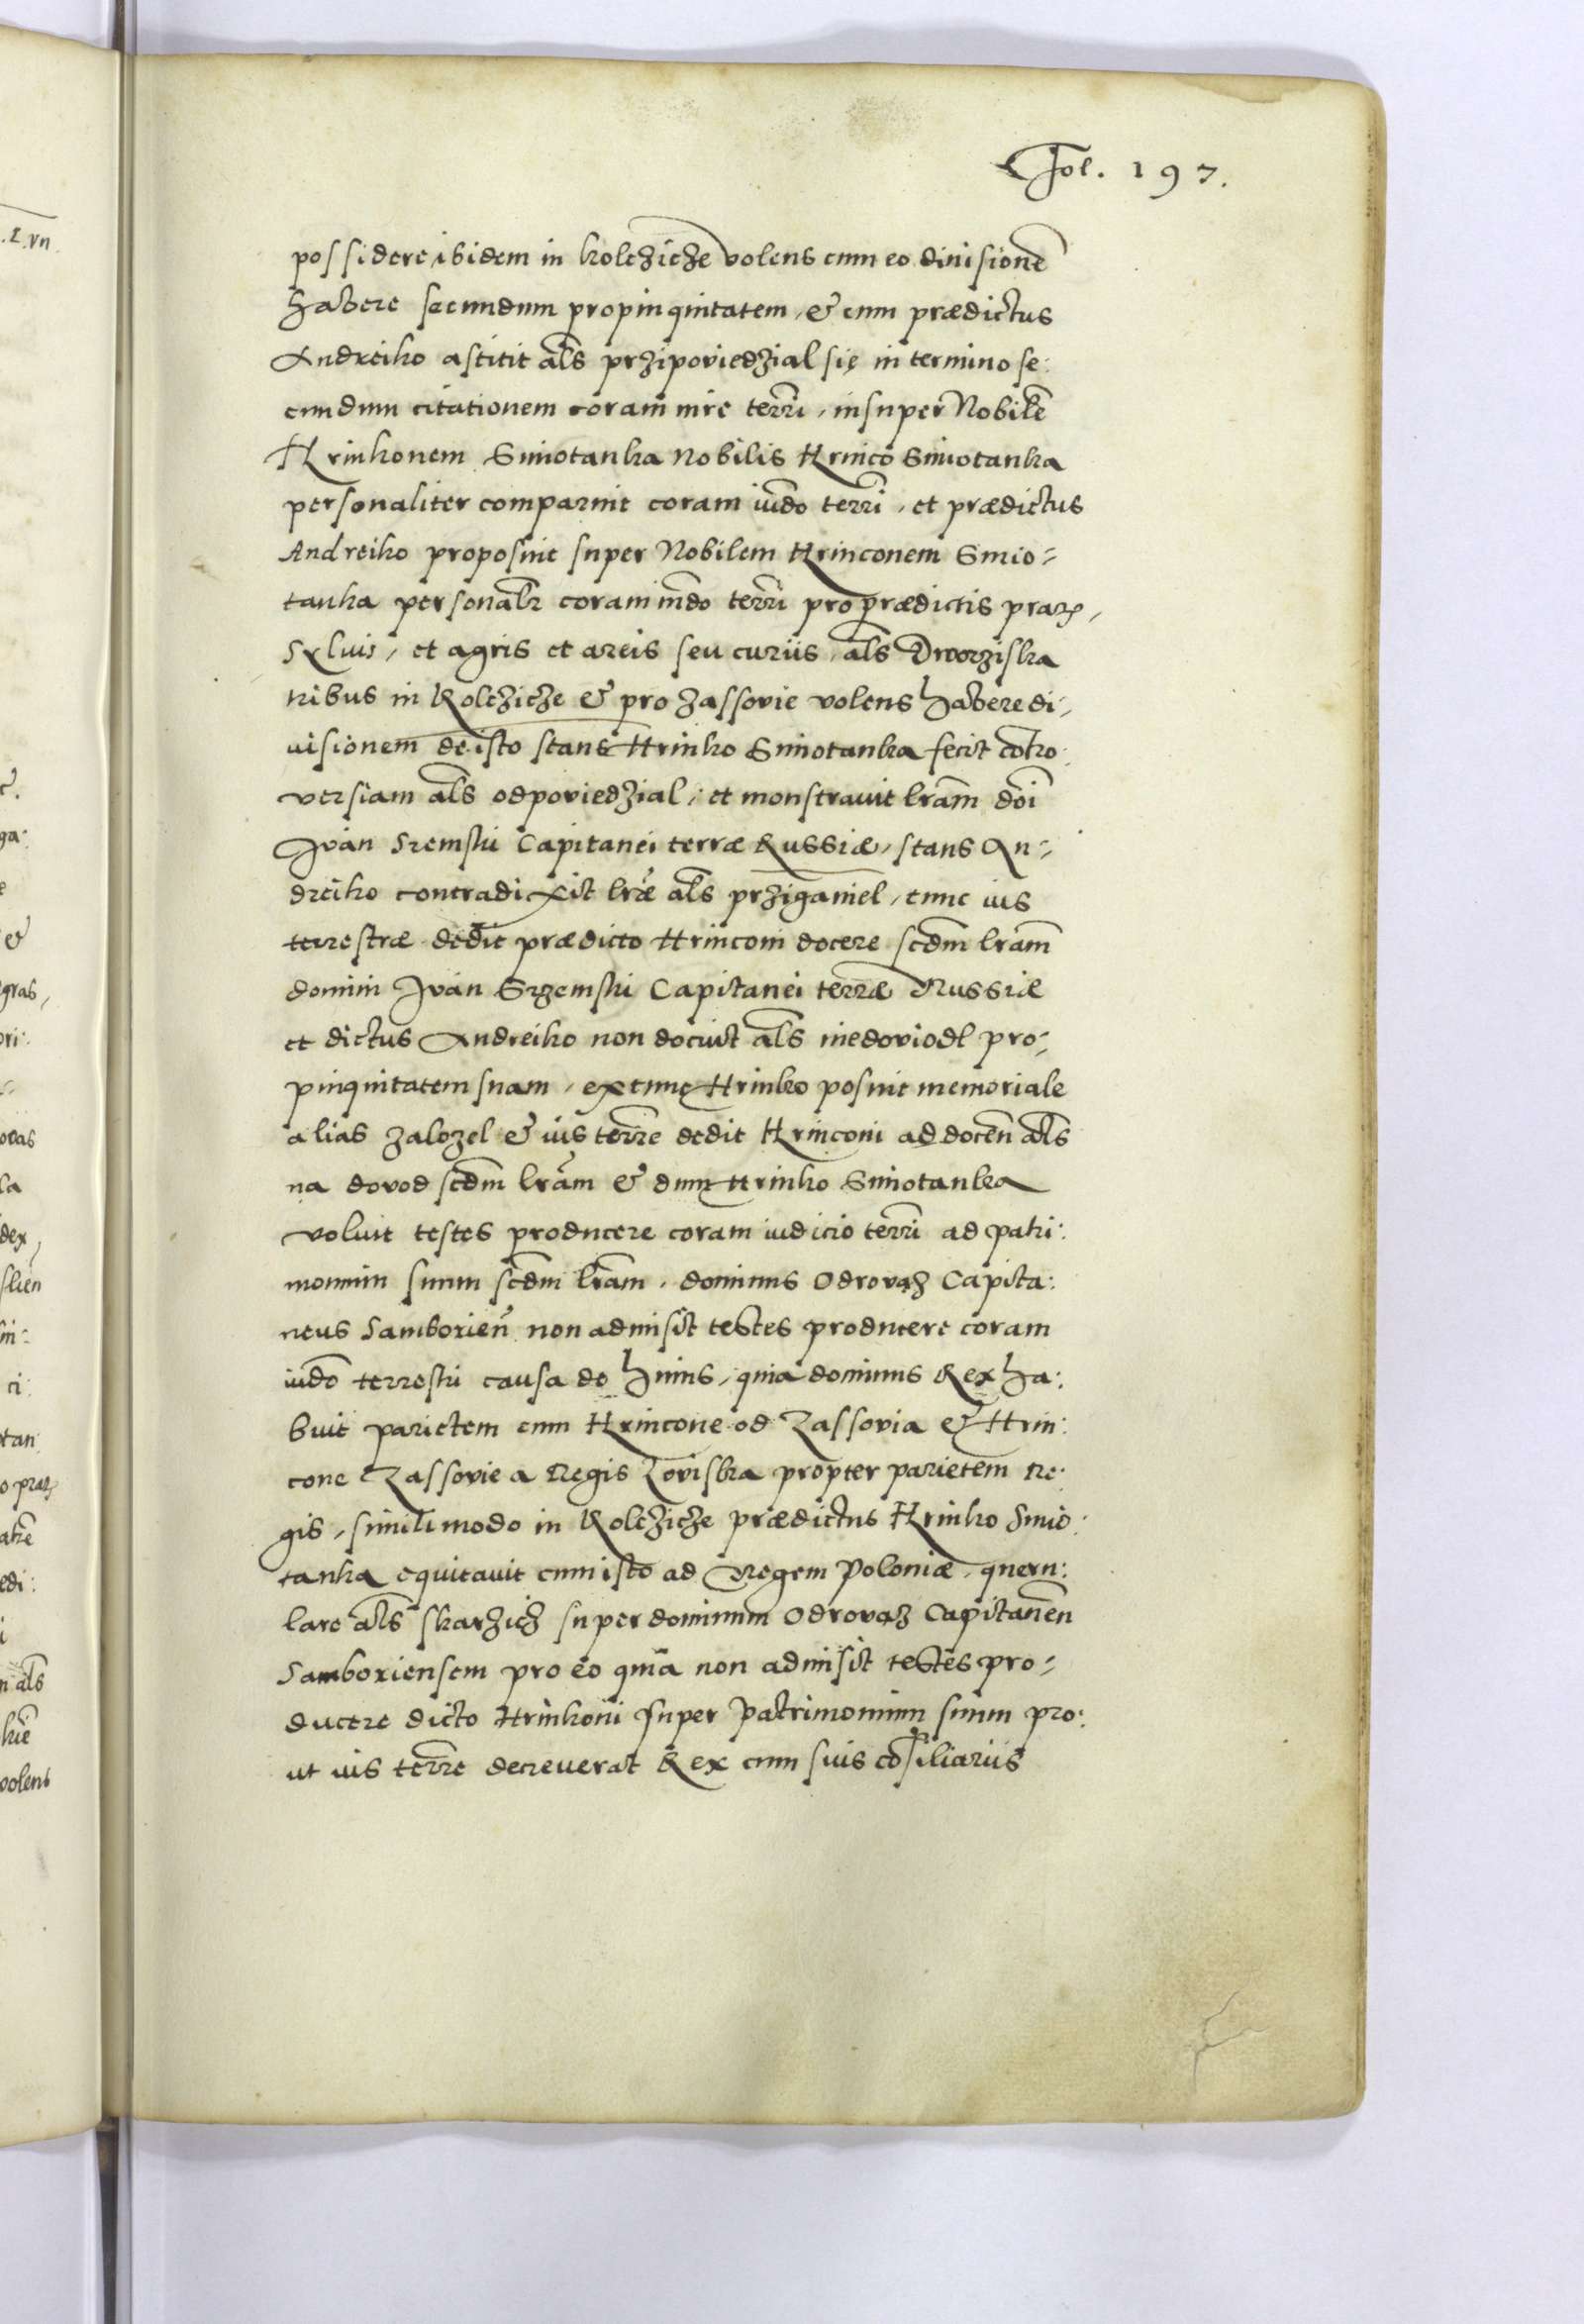 Fol. 197.
possidere ibidem in Kolchicze volens cum eo diuisionē
habere secundum propinquitatem, & cum prædictus
Andreiko astitit als przipoviedzial się in termino se:
cundum citationem coram iure terrī, insuper Nobilē
Hrinkonem Smiotanka Nobilis Hrinco Smiotanka
personaliter comparuit coram iudō terrī, et prædictus
Andreiko proposuit super Nobilem Hrinconem Smio=
tanka personalr coram iudō terrī pro prædictis prat,
Syluis, et agris et areis seu curiis, als Dworziska
tribus in Kolczicze & pro Zassovie volens habere di,
uisionem de isto stans Hrinko Smiotanka fecit cōtro:
versiam als odpoviedzial, et monstrauit lrām dōi
Ivan Sremski Capitanei terræ Russiæ, stans An=
dreiko contradixit lræ als prziganiel, tunc ius
terrestræ dedit prædicto Hrinconi docere scdm lrām
domini Ivan Srzemski Capitanei terræ Russiæ
et dictus Andreiko non docuit als niedoviodl pro=
pinquitatem suam, ex tunc Hrinko posuit memoriale
alias zalozel & ius terrē dedit Hrinconi ad docen̄ als
na dovod scdm lrām & dum Hrinko Smiotanka
voluit testes producere coram iudicio terrī ad patri:
monium suum scdm lrām, dominus Odrovąz Capita:
neus Samborien̄ non admisit testes producere coram
iudō terrestri causa de huius, quia dominus Rex ha:
buit parietem cum Hrincone od Zassovia & Hrin:
cone Zassovie a Regis Loviska propter parietem Re:
gis, simili modo in Kolczicze prædictus Hrinko Smio:
tanka equitauit cum isto ad Regem Poloniæ, queru:
lare als skarzicz super dominum Odrovąz Capitaneū
Samboriensem pro eo quia non admisit testes pro=
ducere dicto Hrinkoni super Patrimonium suum pro:
ut ius terrē decreuerat Rex cum suis cōsiliariis